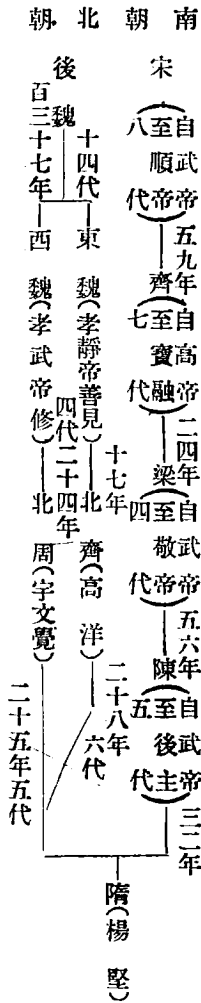 南朝
宋(自武帝至順帝八代)五九年 齊(自高帝至寶融七代)二四年 梁(自武帝至敬帝四代)五六年 陳(自武帝至後主五代)三二年
北朝
後魏
十四代
百三十七年
東魏(孝靜帝善見)十七年 北齊(高洋)二十八年六代
西魏(孝武帝修)四代二十四年 北周(宇文覺)二十五年五代
隋(楊堅)